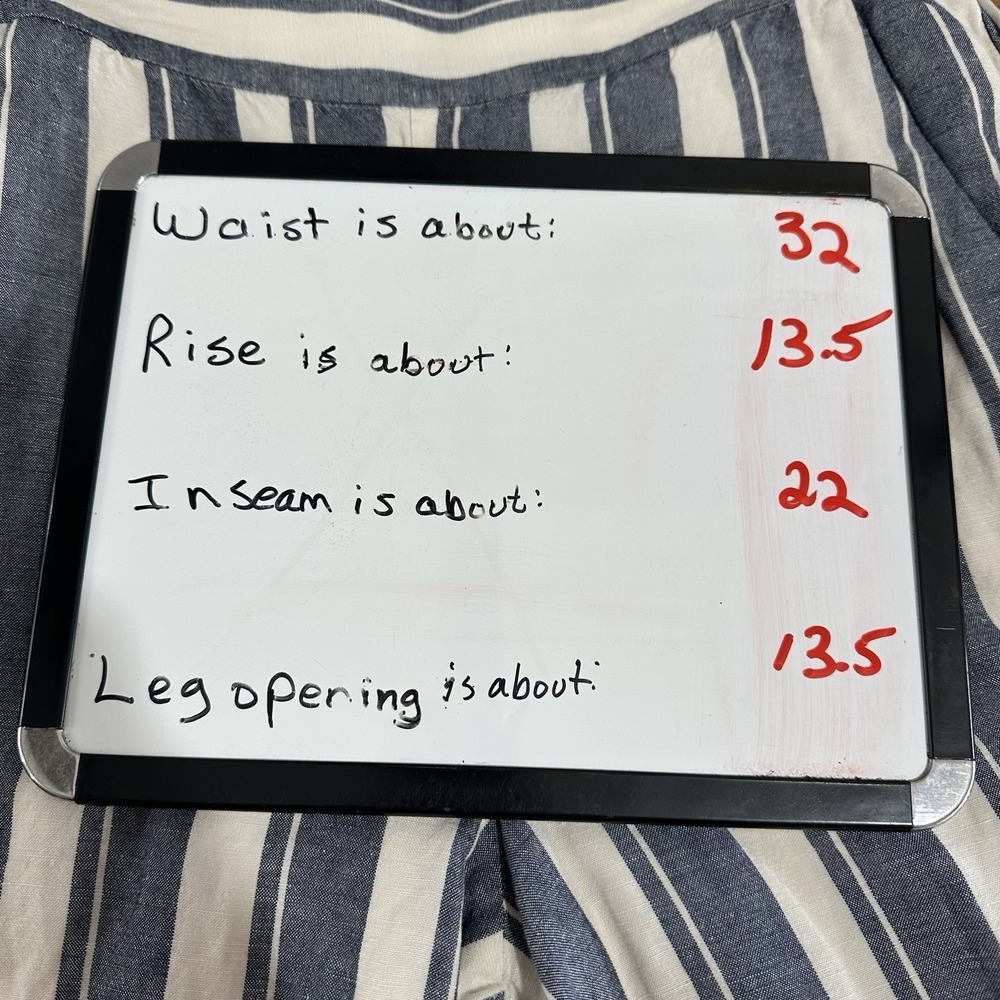 Waist is about: 32
Rise is about: 13.5
Inseam is about: 22
Leg opening is about: 13.5